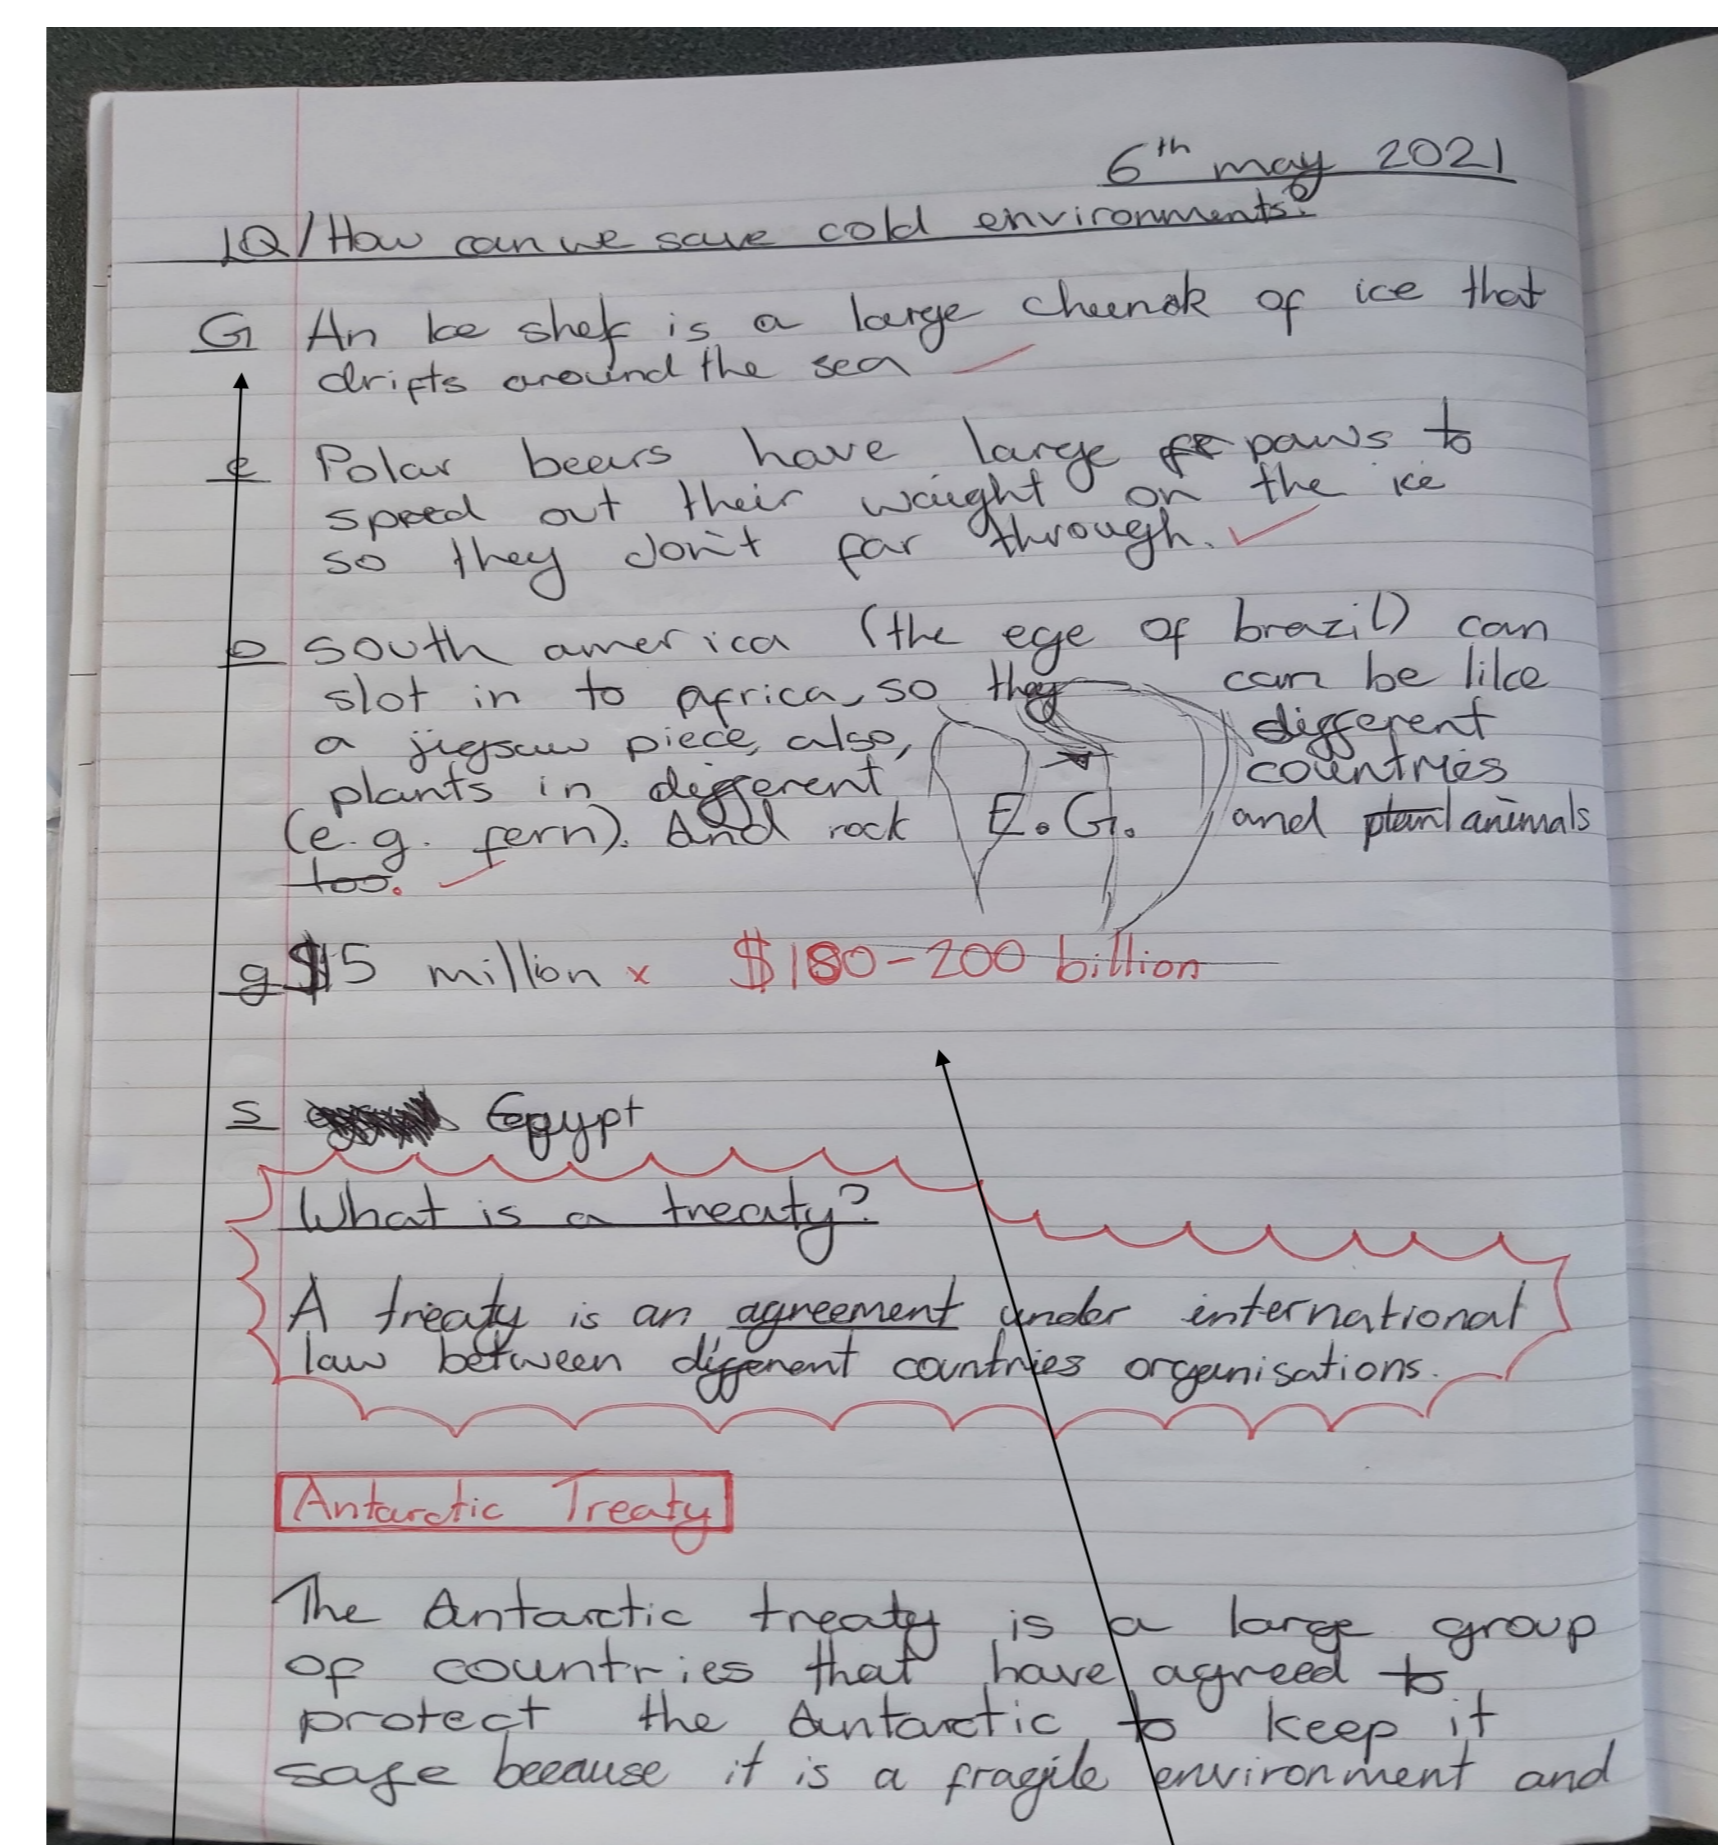 6th may 2021
LQ/How can we save cold environments?
G An Ice shelf is a large chunk of ice that
drifts around the sea
e Polar bears have large paws to
spred out their waight on the ice
so they don't far through.
o South america (the ege of brazil) can
slot in to africa, so they can be like
a jigsaw piece, also, different
plants in different countries
(e.g. fern). And rock E.G. and plant animals
too.
g $15 million x $180-200 billion
s Egypt
What is a treaty?
A treaty is an agreement under international
law between different countries organisations.
Antarctic Treaty
The Antarctic treaty is a large group
of countries that have agreed to
protect the Antarctic to keep it
safe because it is a fragile environment and